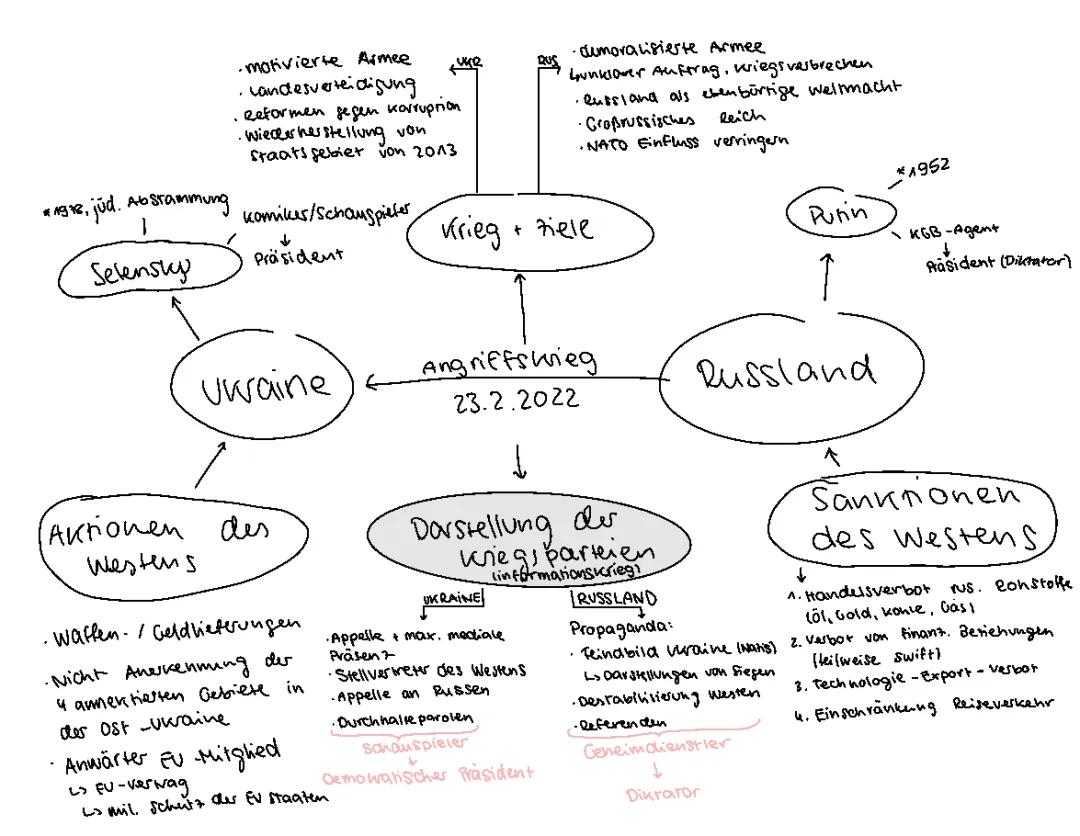 UKR
· motivierte Armee
· Landesverteidigung
· Reformen gegen Korruption
· Wiederherstellung von
Staatsgebiet von 2013
RUS
· demoralisierte Armee
↳ unklarer Auftrag, Kriegsverbrechen
· Russland als ebenbürtige Weltmacht
· Großrussisches Reich
· NATO Einfluss verringern
*1978, jüd. Abstammung
Komiker/Schauspieler
↓
Präsident
Selensky
Krieg + Ziele
Putin
*1952
KGB-Agent
↓
Präsident (Diktator)
Ukraine
Angriffskrieg
23.2.2022
Russland
Aktionen des
Westens
· Waffen- / Geldlieferungen
· Nicht Anerkennung der
4 annektierten Gebiete in
der Ost-Ukraine
· Anwärter EU-Mitglied
↳ EU-Vertrag
↳ mil. Schutz der EU Staaten
Darstellung der
Kriegsparteien
(Informationskrieg)
UKRAINE
· Appelle + max. mediale
Präsenz
· Stellvertreter des Westens
· Appelle an Russen
· Durchhalteparolen
Schauspieler
↓
Demokratischer Präsident
RUSSLAND
Propaganda:
· Feindbild Ukraine (Nazis)
↳ Darstellungen von Siegen
· Destabilisierung Westen
· Referenden
Geheimdienstler
↓
Diktator
Sanktionen
des Westens
1. Handelsverbot rus. Rohstoffe
(Öl, Gold, Kohle, Gas)
2. Verbot von finanz. Beziehungen
(teilweise Swift)
3. Technologie-Export-Verbot
4. Einschränkung Reiseverkehr